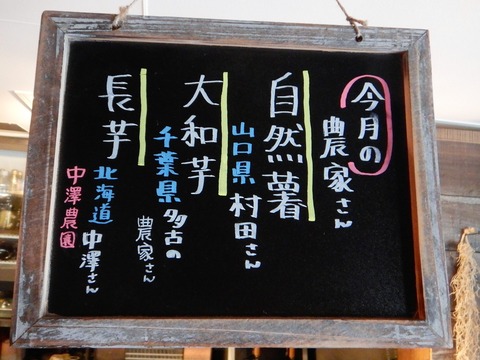 今月の
農家さん
自然薯
山口県 村田さん
大和芋
千葉県 多古の
農家さん
長芋
北海道 中澤さん
中澤農園